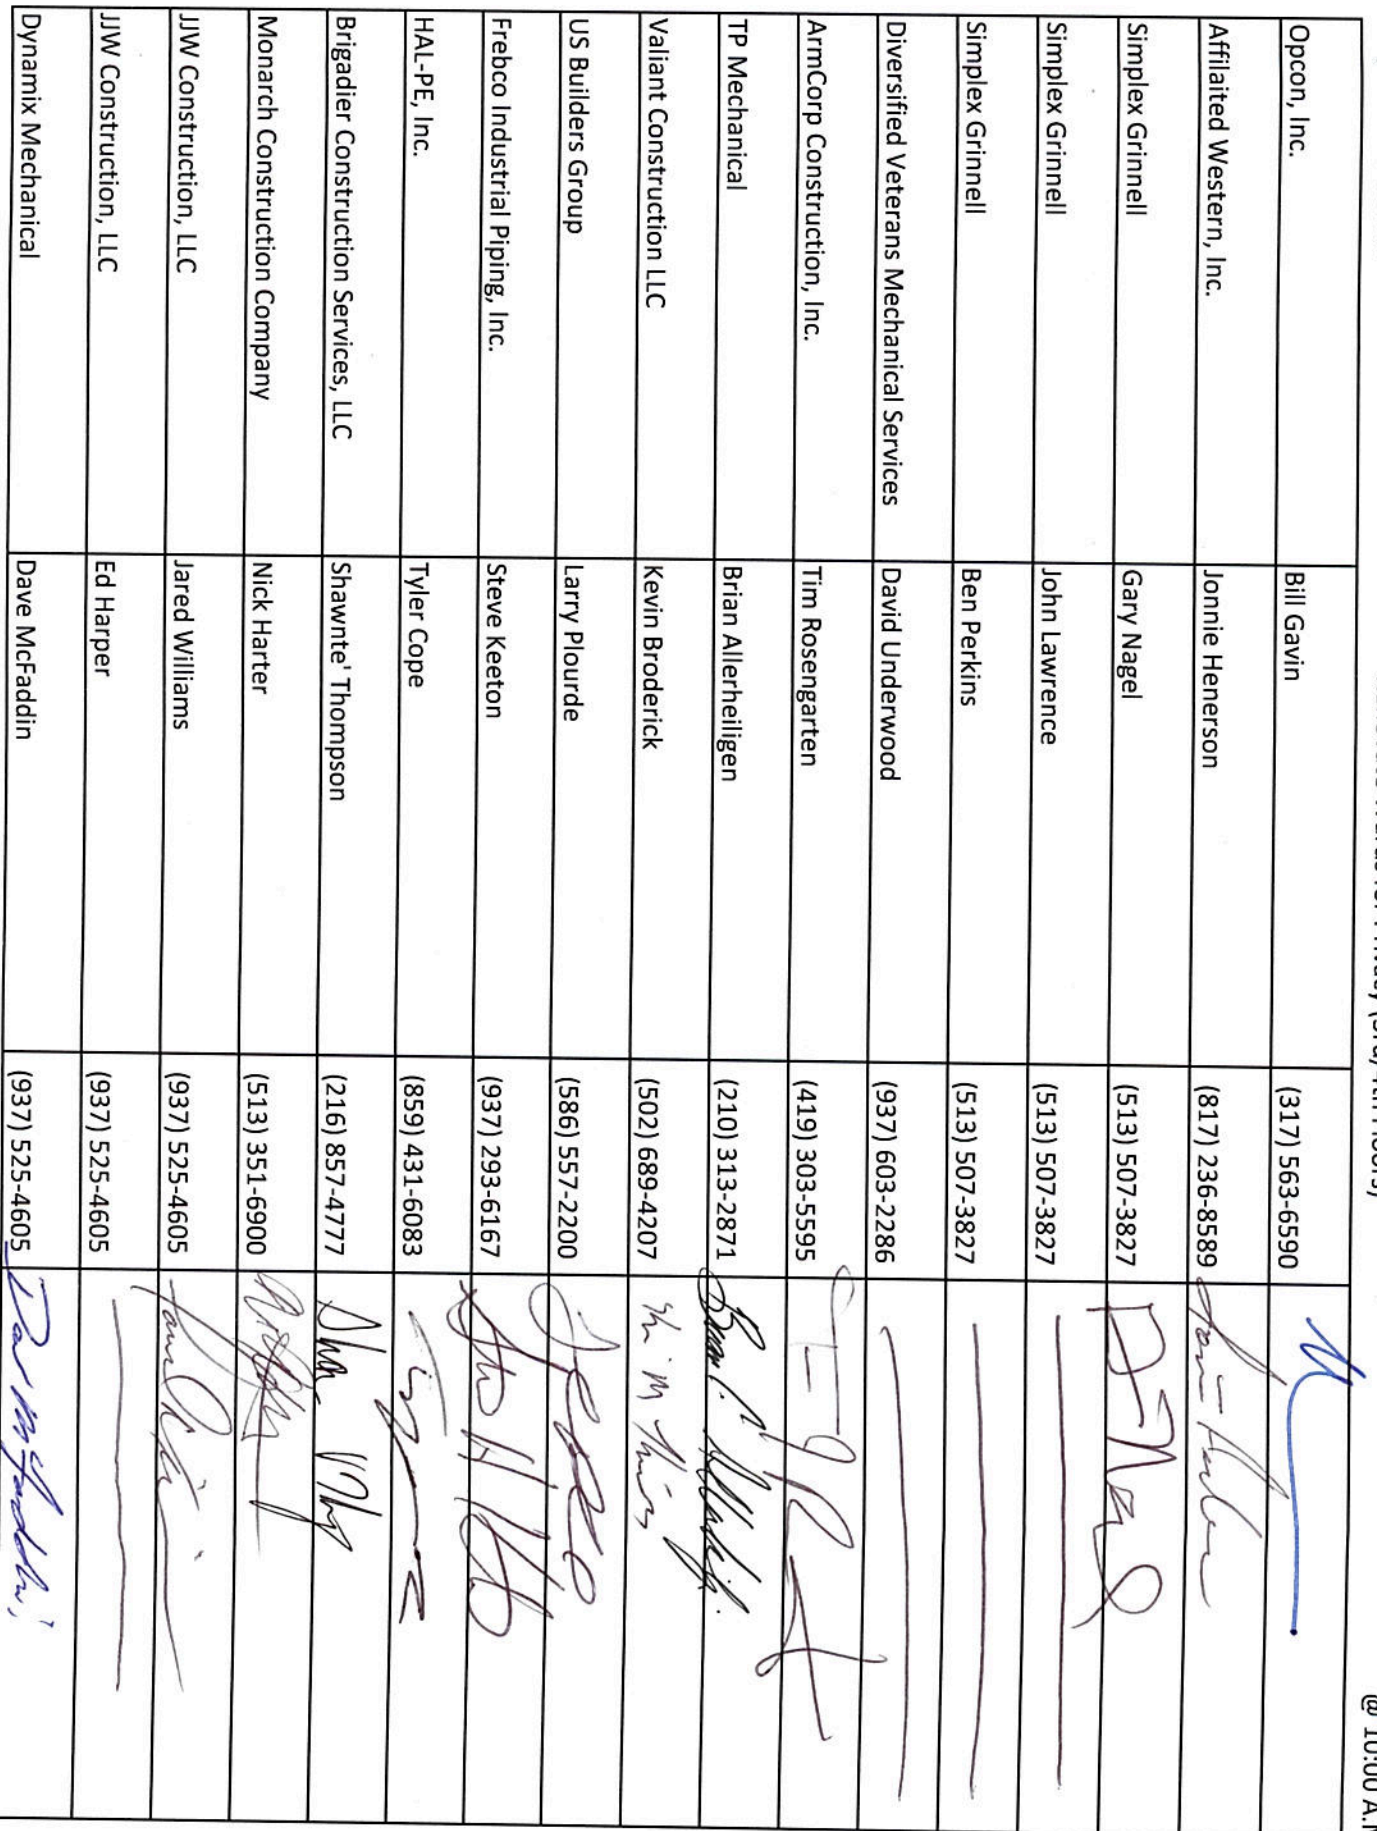 Wards for Privacy (3rd/4th Floors)
@ 10:00 A.M
Opcon, Inc. Bill Gavin (317) 563-6590
Affilaited Western, Inc. Jonnie Henerson (817) 236-8589
Simplex Grinnell Gary Nagel (513) 507-3827
Simplex Grinnell John Lawrence (513) 507-3827
Simplex Grinnell Ben Perkins (513) 507-3827
Diversified Veterans Mechanical Services David Underwood (937) 603-2286
ArmCorp Construction, Inc. Tim Rosengarten (419) 303-5595
TP Mechanical Brian Allerheiligen (210) 313-2871
Valiant Construction LLC Kevin Broderick (502) 689-4207
US Builders Group Larry Plourde (586) 557-2200
Frebco Industrial Piping, Inc. Steve Keeton (937) 293-6167
HAL-PE, Inc. Tyler Cope (859) 431-6083
Brigadier Construction Services, LLC Shawnte' Thompson (216) 857-4777
Monarch Construction Company Nick Harter (513) 351-6900
JJW Construction, LLC Jared Williams (937) 525-4605
JJW Construction, LLC Ed Harper (937) 525-4605
Dynamix Mechanical Dave McFaddin (937) 525-4605